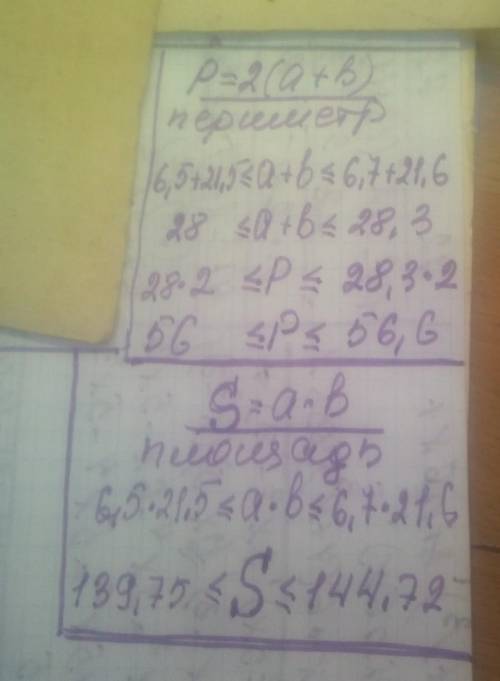 P=2(a+b)
периметр
6,5+21,5≤a+b≤6,7+21,6
28 ≤a+b≤ 28,3
28·2 ≤P≤ 28,3·2
56 ≤P≤ 56,6
S=a·b
площадь
6,5·21,5≤a·b≤6,7·21,6
139,75≤S≤144,72